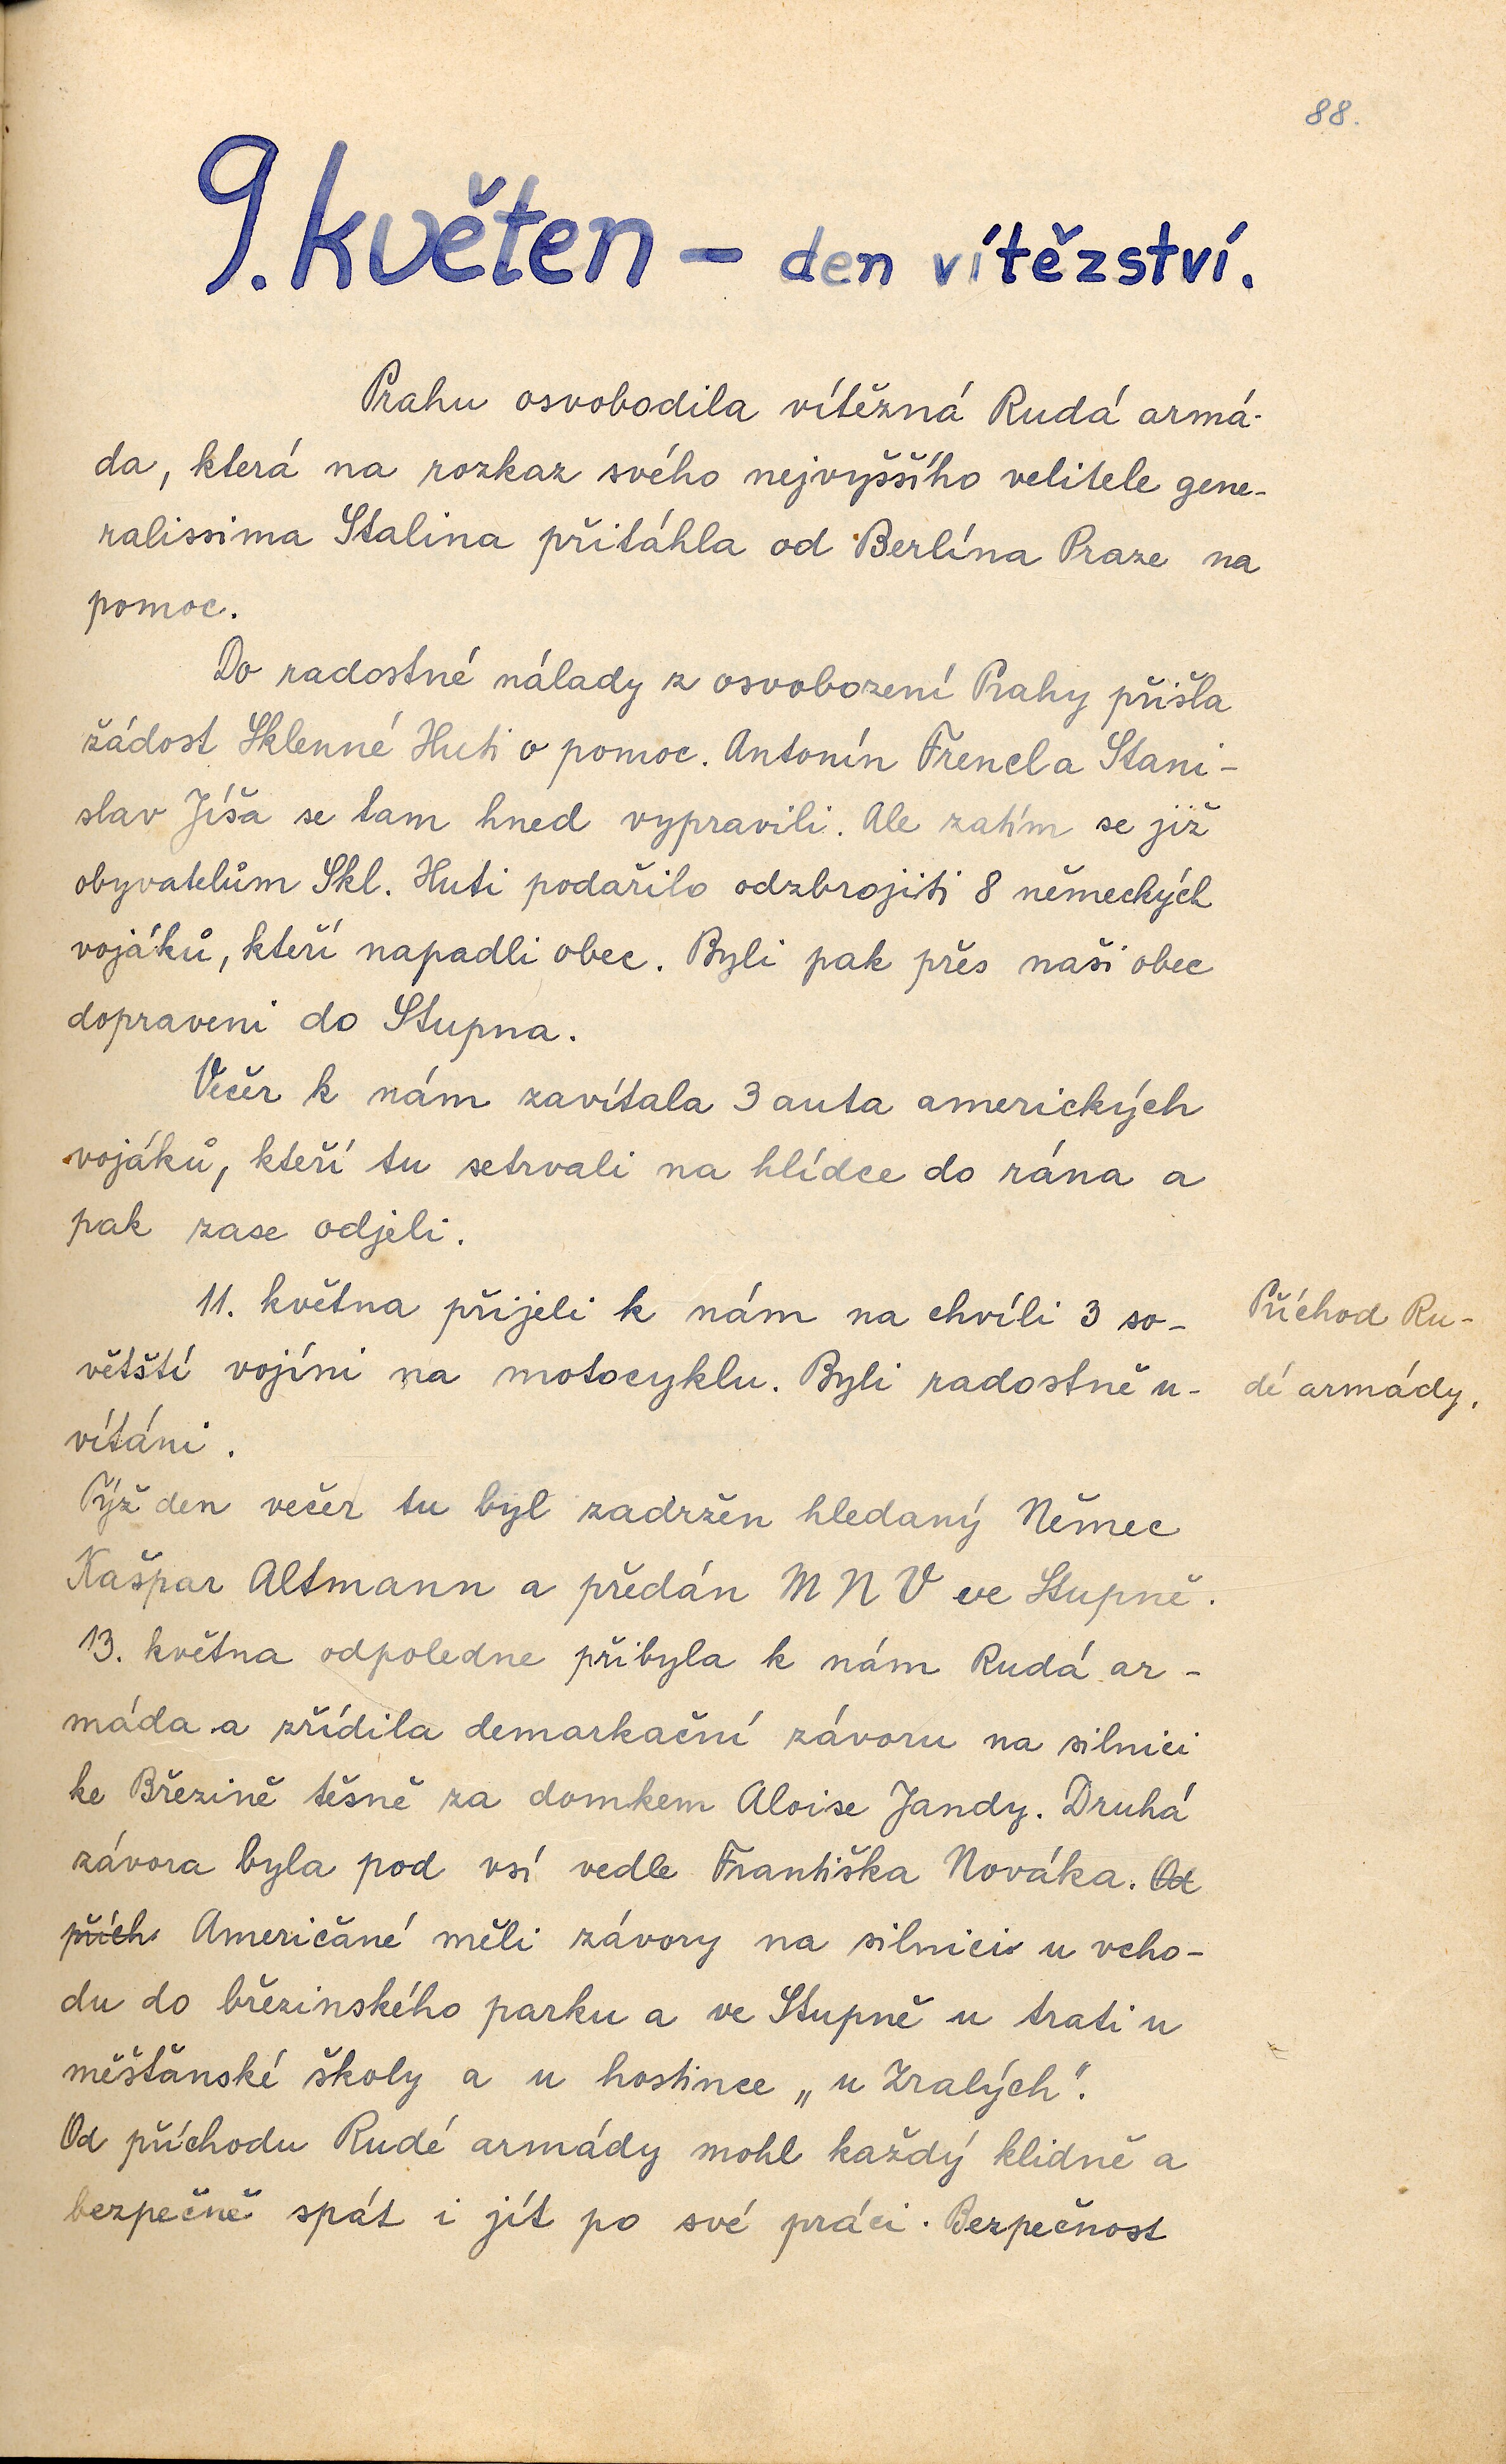 88.
9. květen – den vítězství.
Prahu osvobodila vítězná Rudá armá-
da, která na rozkaz svého nejvyššího velitele gene-
ralissima Stalina přitáhla od Berlína Praze na
pomoc.
Do radostné nálady z osvobození Prahy přišla
žádost Sklenné Huti o pomoc. Antonín Frencl a Stani-
slav Jíša se tam hned vypravili. Ale zatím se již
obyvatelům Skl. Huti podařilo odzbrojiti 8 německých
vojáků, kteří napadli obec. Byli pak přes naši obec
dopraveni do Stupna.
Večer k nám zavítala 3 auta amerických
vojáků, kteří tu setrvali na hlídce do rána a
pak zase odjeli.
11. května přijeli k nám na chvíli 3 so-
větští vojíni na motocyklu. Byli radostně u-
vítáni.
Příchod Ru-
dé armády.
Týž den večer tu byl zadržen hledaný Němec
Kašpar Altmann a předán M N V ve Stupně.
13. května odpoledne přibyla k nám Rudá ar-
máda a zřídila demarkační závoru na silnici
ke Březině těsně za domkem Aloise Jandy. Druhá
závora byla pod vsí vedle Františka Nováka. Od
přích Američané měli závory na silnici u vcho-
du do březinského parku a ve Stupně u trati u
měšťanské školy a u hostince „u Zralých".
Od příchodu Rudé armády mohl každý klidně a
bezpečně spát i jít po své práci. Bezpečnost